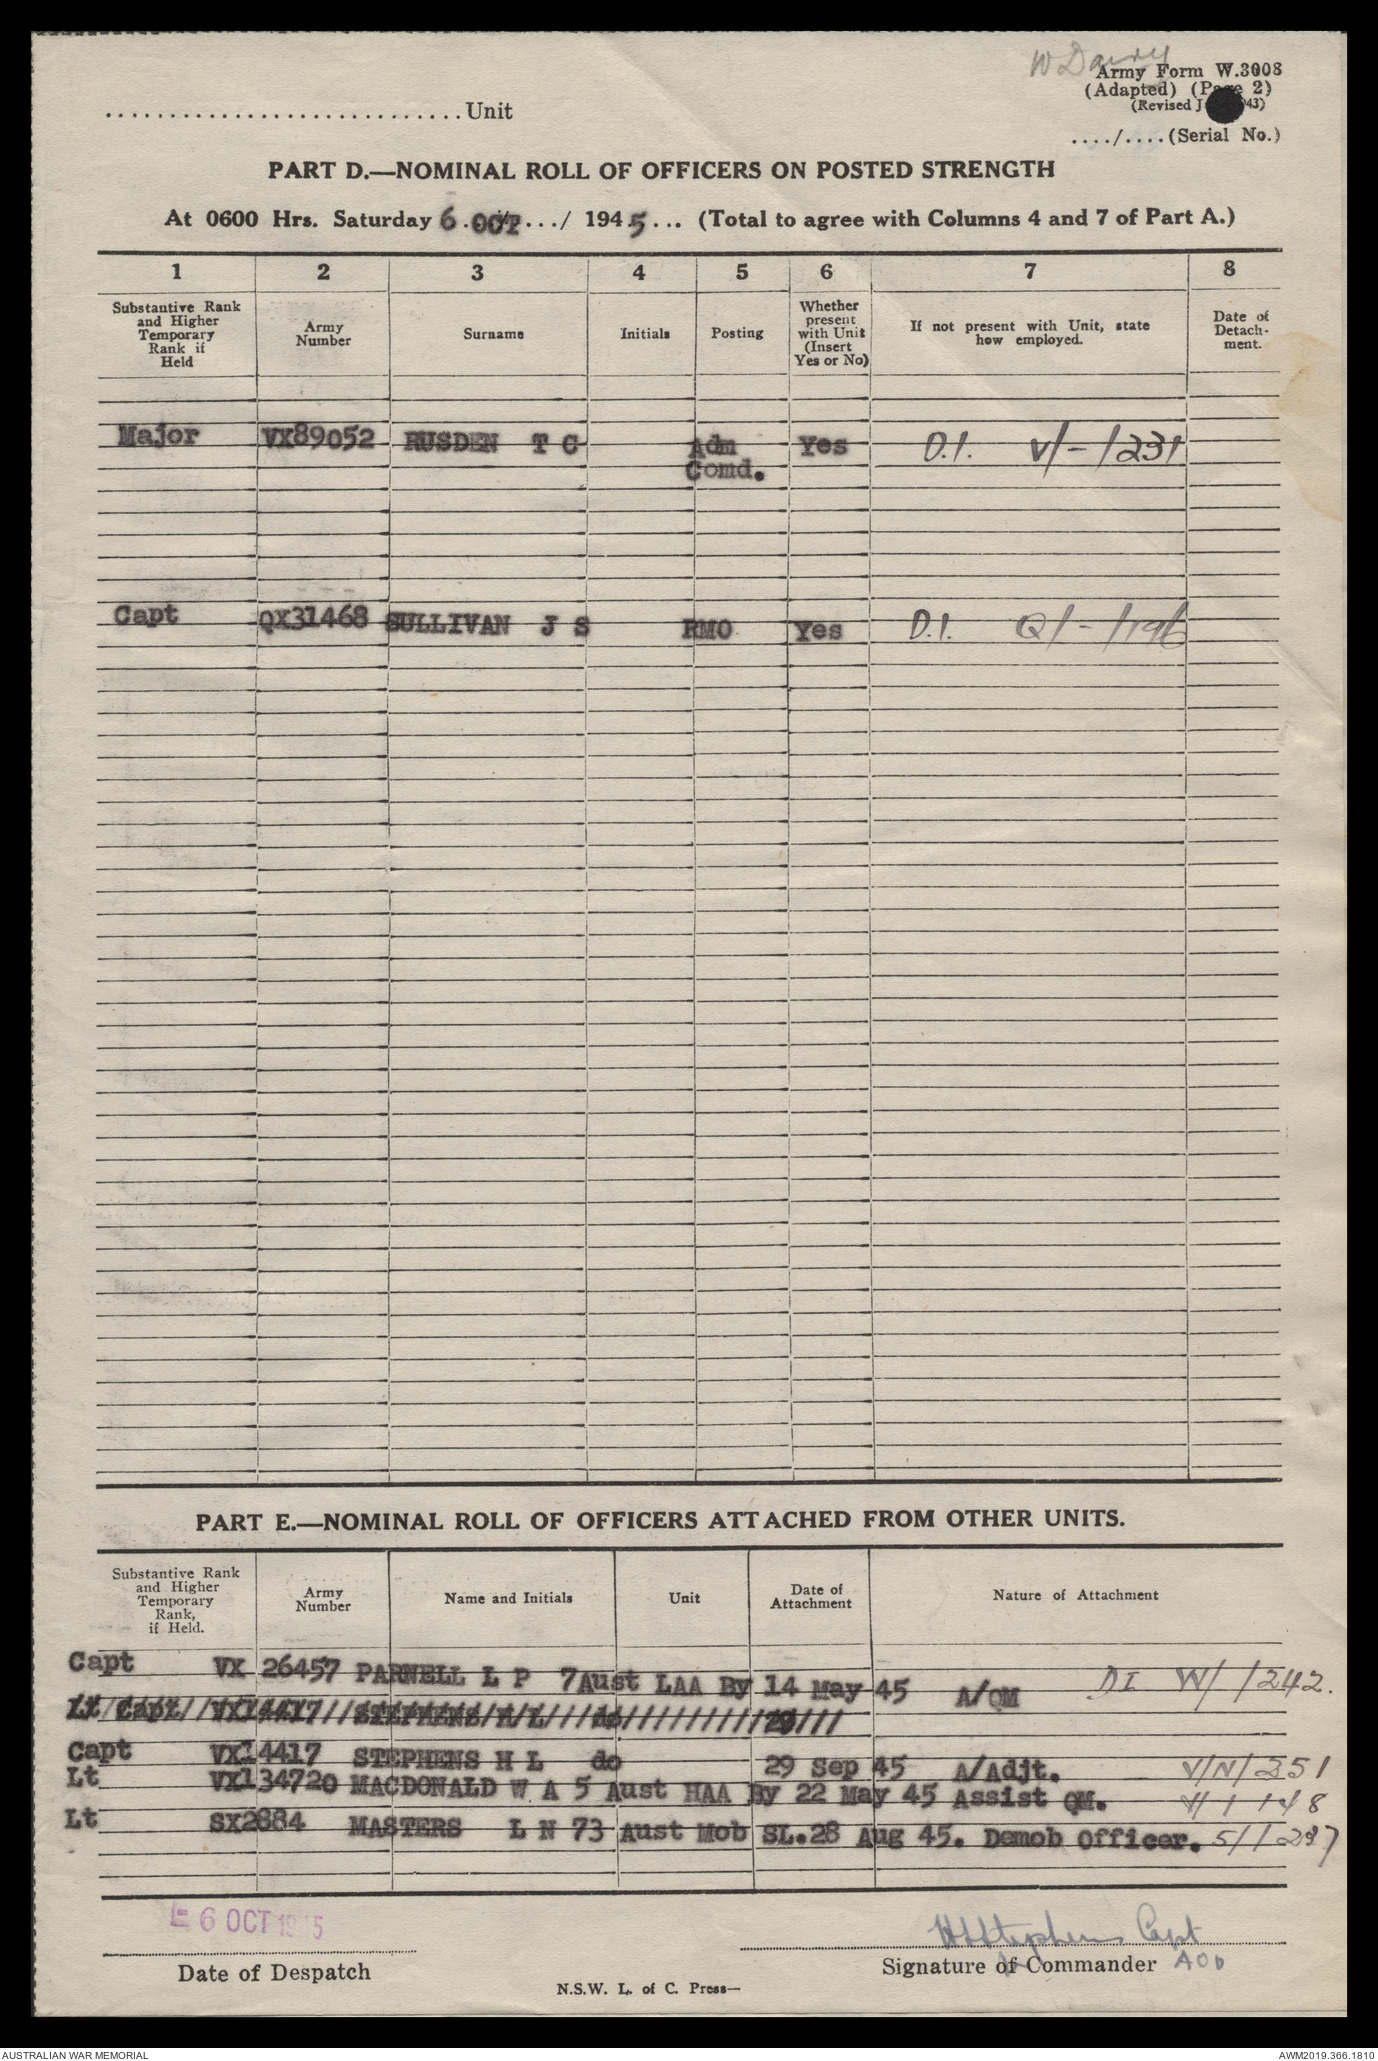 W Dairy
Army Form W.3008
(Adapted) (Page 2)
(Revised J 43)
............................Unit
..../....(Serial No.)
PART D.—NOMINAL ROLL OF OFFICERS ON POSTED STRENGTH
At 0600 Hrs. Saturday 6 OCT / 1945 ... (Total to agree with Columns 4 and 7 of Part A.)
1 2 3 4 5 6 7 8
Substantive Rank and Higher Temporary Rank if Held
Army Number
Surname
Initials
Posting
Whether present with Unit (Insert Yes or No)
If not present with Unit, state how employed.
Date of Detach-ment.
Major VX89052 RUSDEN T C Adm Comd. Yes D.I. V/-/231
Capt QX31468 SULLIVAN J S RMO Yes D.I. Q/-/196
PART E.—NOMINAL ROLL OF OFFICERS ATTACHED FROM OTHER UNITS.
Substantive Rank and Higher Temporary Rank, if Held.
Army Number
Name and Initials
Unit
Date of Attachment
Nature of Attachment
Capt VX 26457 PARNELL L P 7Aust LAA By 14 May 45 A/QM DI W/ /242.
Lt/Capt//VX14417//STEPHENS/H/L///do//////////29///
Capt VX14417 STEPHENS H L do 29 Sep 45 A/Adjt. V/N/251
Lt VX134720 MACDONALD W A 5 Aust HAA By 22 May 45 Assist QM. 148
Lt SX2884 MASTERS L N 73 Aust Mob SL.28 Aug 45. Demob Officer. S/ /237
6 OCT 1945
HLStephens Capt
Date of Despatch
Signature of Commander
N.S.W. L. of C. Press—
AUSTRALIAN WAR MEMORIAL
AWM2019.366.1810